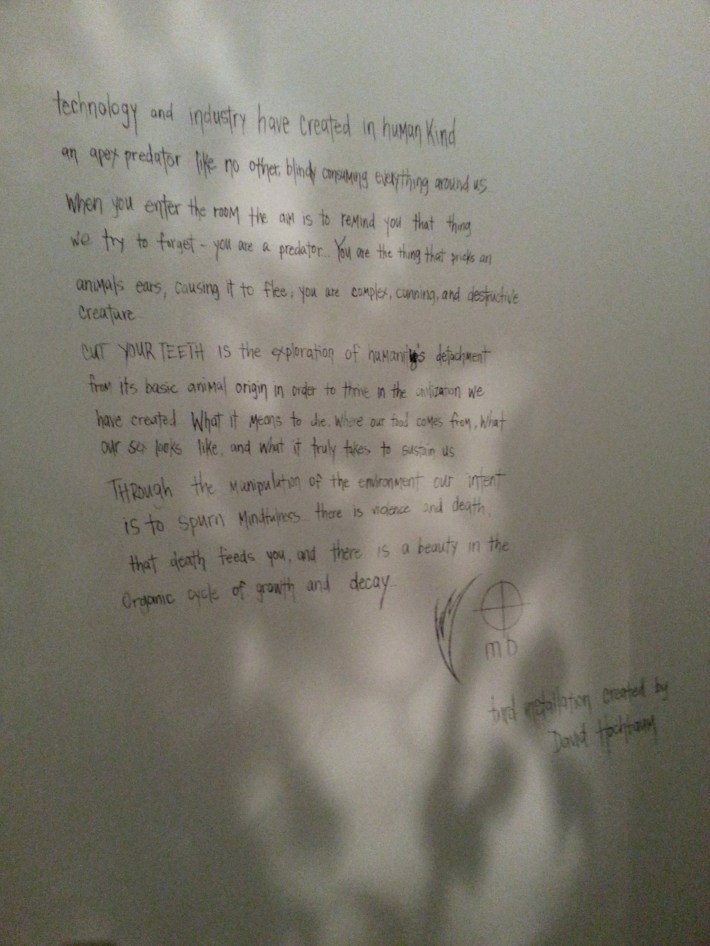 technology and industry have created in human kind
an apex predator like no other, blindly consuming everything around us.
When you enter the room the aim is to remind you that thing
we try to forget - you are a predator. You are the thing that pricks an
animals ears, causing it to flee, you are complex, cunning, and destructive
creature
CUT YOUR TEETH is the exploration of humanity's detachment
from its basic animal origin in order to thrive in the civilization we
have created. What it means to die. Where our food comes from, what
our sex looks like, and what it truly takes to sustain us
THROUGH the manipulation of the environment our intent
is to spurn mindfulness. there is violence and death.
that death feeds you, and there is a beauty in the
organic cycle of growth and decay.
mb
installation created by
David